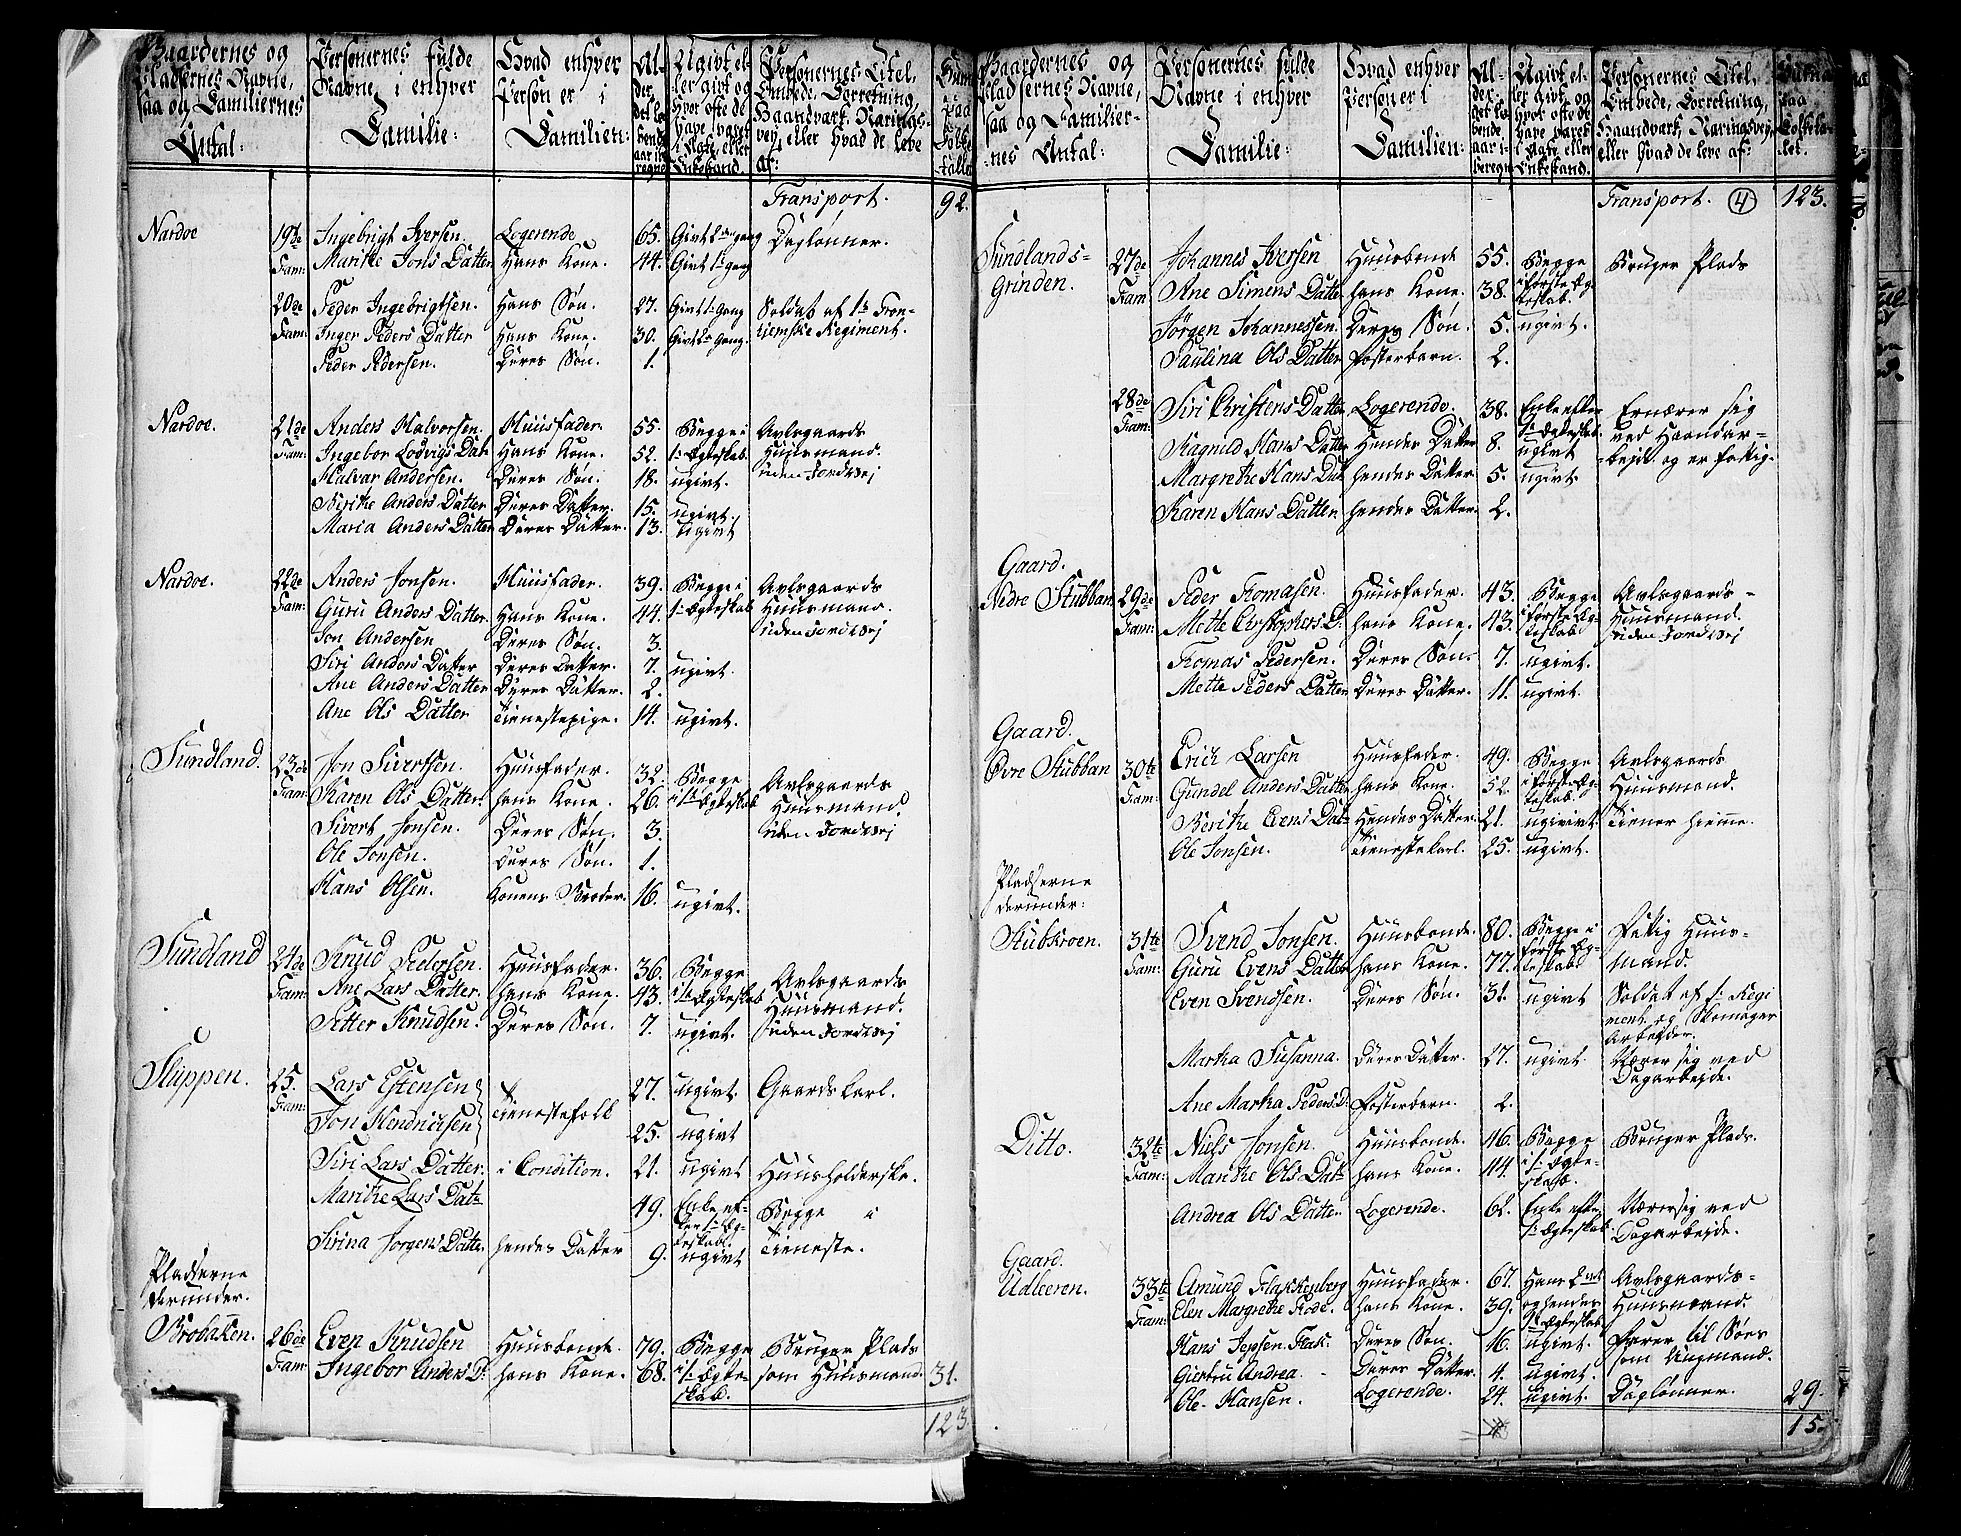 Gaardernes og Pladsernes Navne, saa og Familiernes Antal: | Personernes fulde Navne i enhver Familie: | Hvad enhver Person er i Familien: | Alder, det løbende aar iberegnet | Ugivt eller givt og hvor ofte de have været i Ægte eller Enkestand. | Personernes Titel, Embede, Forretning, Haandværk, Næringsvej, eller hvad de leve af: | Summa paa Folketallet
Transport. 92.
Nardoe 19de Fam: Ingebrigt Iversen. Logerende 65. Givt gang Daglønner.
Marithe Jons Datter Hans Kone. 44. Givt 1ste gang
20de Fam: Peder Ingebrigtsen. Hans Søn. 27. Givt 1 Gang Soldat af 1ste Tron-
Inger Peders Datter Hans Kone. 30. Givt 1ste Gang. hiemske Regiment.
Peder Pedersen. Deres Søn. 1.
Nardoe. 21de Fam: Anders Halvorsen. Huusfader. 55. Begge i Avlsgaards
Ingebor Lodvigs Dat: Hans Kone. 52. 1. Ægteskab. Huusmand.
Halvar Andersen. Deres Søn. 18. ugivt. uden Jordvej
Berithe Anders Datter Deres Datter. 15. ugivt.
Maria Anders Datter Deres Datter. 13. ugivt
Nardoe. 22de Fam: Anders Jonsen. Huusfader. 39. Begge i Avlsgaards
Guru Anders Datter. Hans Kone. 44. 1. Ægteskab Huusmand.
Jon Andersen Deres Søn. 3. uden Jordvej
Siri Anders Datter Deres Datter. 7. ugivt.
Ane Anders Datter Deres Datter. 2.
Ane Ols Datter Tienestepige. 14. ugivt.
Sundland. 23de Fam: Jon Sivertsen. Huusfader. 32. Begge Avlsgaards
Karen Ols Datter. hans Kone. 26. i 1ste Ægteskab Huusmand.
Sivert Jonsen. Deres Søn. 3. uden Jordvej
Ole Jonsen. Deres Søn. 1.
Hans Olsen. Konens Broder. 16. ugivt.
Sundland 24de Fam: Knud Pedersen. Huusfader. 36. Begge Avlsgaards
Ane Lars Datter. hans Kone. 43. i 1ste Ægteskab Huusmand.
Petter Knudsen. Deres Søn. 7. ugivt. uden Jordvej
Sluppen. 25. Fam: Lars Estensen Tienestefolk 27. ugivt. Gaardskarl.
Jon Hendricsen 25. ugivt
Siri Lars Datter. i Condition. 21. ugivt Huusholderske.
Marithe Lars Dat: 49. Enke efter 1. Ægteskab. Begge i
Sirina Jorgens Datter. hendes Datter 9. ugivt Tieneste.
Pladserne
derunder.
Brobaken. 26de Fam: Even Knudsen Huusbonde. 79. Begge Bruger Plads
Ingebor Anders D: hans Kone. 68. i 1. Ægteskab. som Huusmand. 31.
123.
Gaardernes og Pladsernes Navne, saa og Familiernes Antal: | Personernes fulde Navne i enhver Familie: | Hvad enhver Person er i Familien: | Alder det løbende aar iberegnet | Ugivt eller givt, og hvor ofte de have været i Ægte eller Enkestand. | Personernes Titel, Embede, Forretning, Haandværk, Næringsvej, eller hvad de leve af: | Summa paa Folketallet.
Transport. 4 123.
Sundlands-
Grinden. 27de Fam: Johannes Iversen Huusbonde 55. Begge Bruger Plads
Ane Simens Datter hans Kone. 38. i første Ægteskab.
Jørgen Johannessen. Deres Søn. 5. ugivt.
Paulina Ols Datter Posterbarn. 2.
28de Fam: Siri Christens Datter Logerende. 38. Enke efter Ernærer sig
Ragnild Hans Datter Hendes Datter 8. 1. Ægteskab. ugivt ved Haandar-
Margrethe Hans Dat: hendes Datter 5. ugivt. bejde og er fattig.
Karen Hans Datter hendes Datter. 2.
Gaard.
Nedre Stubban 29de Fam: Peder Tomasen. Huusfader. 43. Begge Avlsgaards-
Mette Christophers D: hans Kone. 43. i første Ægteskab Huusmand.
uden Jordvej
Tomas Pedersen. Deres Søn. 7. ugivt.
Mette Peders Datter Deres Datter. 11. ugivt.
Gaard.
Øvre Stubban 30te Fam: Erich Larsen Huusfader. 49. Begge Avlsgaards
Gundel Anders Datter hans Kone. 52. i første Ægteskab. Huusmand.
Berithe Evens Dat: Hendes Datter. 21. ugivt. Tiener hiemme.
Ole Jonsen. Tienestekarl. 25. ugivt.
Pladserne
derunder:
Stubkroen. 31te Fam: Svend Jonsen. Huusbonde. 80. Begge i Fattig Huus-
Guru Evens Datter hans Kone. 77. første Ægteskab mand.
Even Svendsen. Deres Søn. 31. ugivt Soldat af 1. Regi
ment og Skomager
Arbejder.
Martha Susanna. Deres Datter. 27. ugivt. Nærer sig ved
Dagarbejde.
Ane Martha Peders D: Posterbarn. 2.
Ditto. 32te Fam: Niels Jonsen. Huusbonde. 46. Begge Bruger Plads.
Marithe Ols Dat: hans Kone. 44. i 1. Ægteskab.
Andrea Ols Datter. Logerende. 62. Enke efter 1. Ægteskab. Nærer sig ved
Dagarbejde.
Gaard.
Udleeren. 33te Fam: Amund Flakkenberg Huusfader. 67. Hans 2det Avlsgaards-
Elen Margrethe Rode. hans Kone. 39. og hendes 1. Ægteskab Huusmand.
Hans Jepsen Flak: Deres Søn. 16. ugivt. farer til Søes
Giertru Andrea. Deres Datter. 4. ugivt. som Ungmand.
Ole Hansen. Logerende. 24. ugivt. Daglønner. 29.
15.